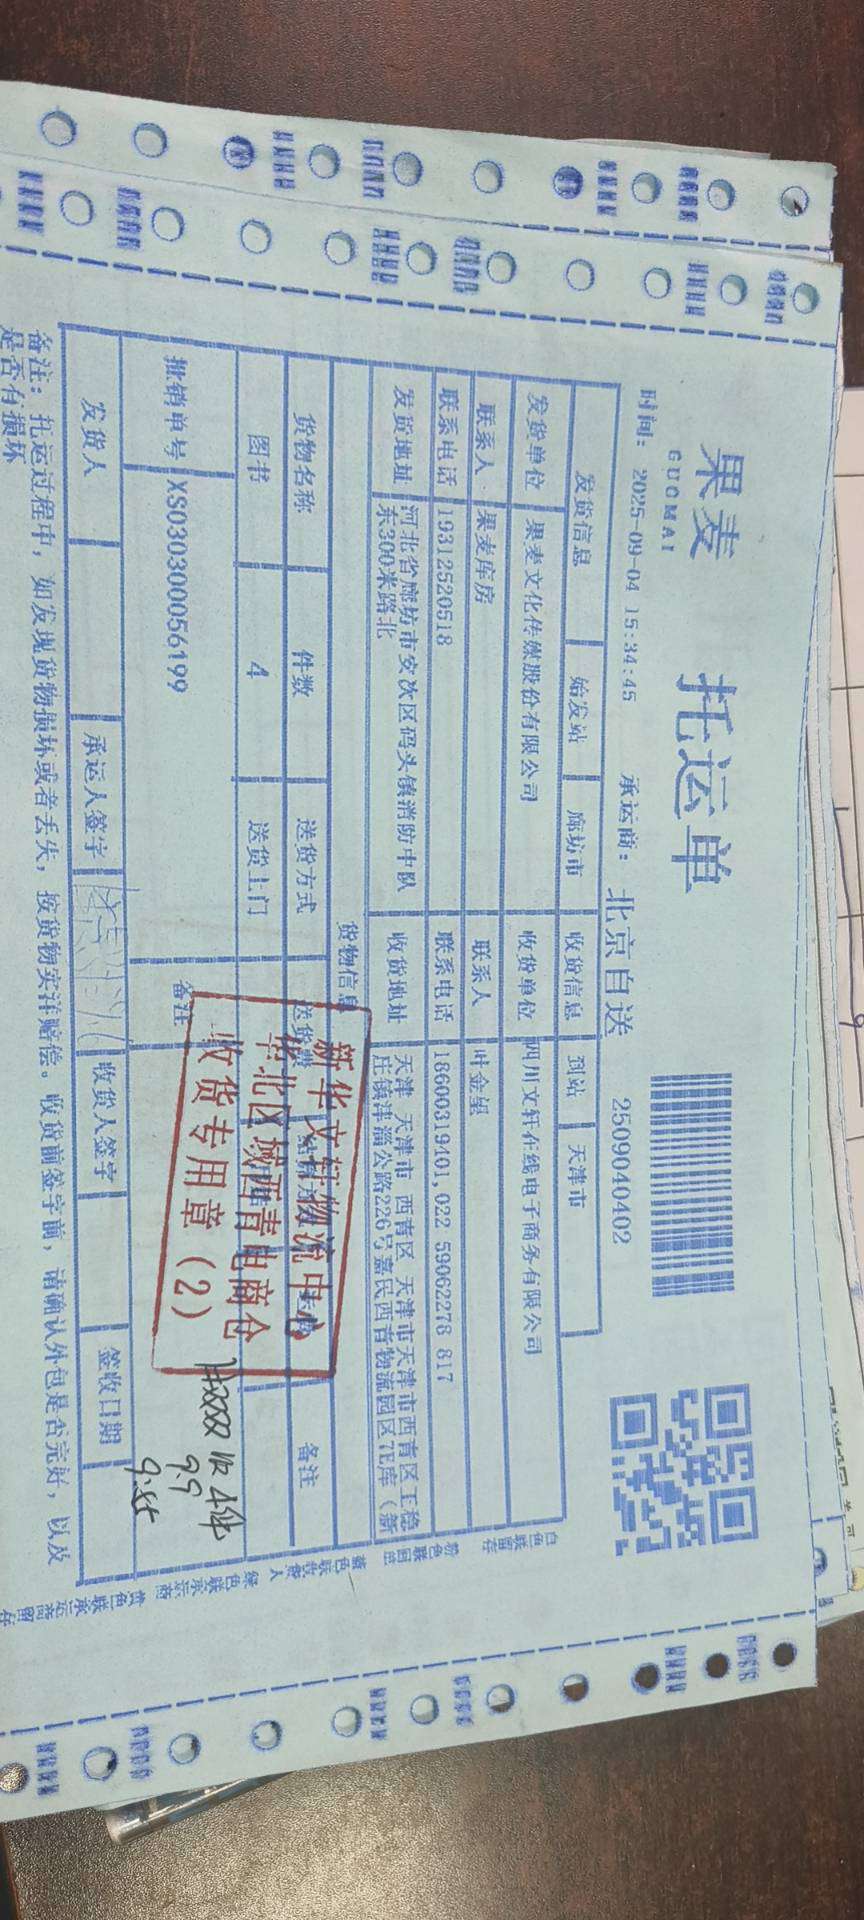 果麦 托运单
GUOMAI
时间: 2025-09-04 15:34:45 承运商: 北京自送 2509040402
发货信息 始发站 廊坊市 收货信息 到站 天津市
发货单位 果麦文化传媒股份有限公司 收货单位 四川文轩在线电子商务有限公司
联系人 果麦库房 联系人 叶金星
联系电话 19312520518 联系电话 18600319401,022 59062278 817
发货地址 河北省廊坊市安次区码头镇消防中队东300米路北 收货地址 天津 天津市 西青区 天津市天津市西青区王稳庄镇津淄公路226号嘉民西青物流园区7E库（新
货物信息
货物名称 件数 送货方式 送货费 备注
图书 4 送货上门
批销单号 XS030300056199 备注
发货人 承运人签字 收货人签字 签收日期
备注: 托运过程中, 如发现货物损坏或者丢失, 按货物实洋赔偿。收货前签字前, 请确认外包是否完好, 以及是否有损坏
新华文轩物流中心
华北区域西青电商仓
收货专用章（2）
收4件
9.5
白色联留存
粉色联回签
蓝色联收货人
绿色联承运商
黄色联承运商留存